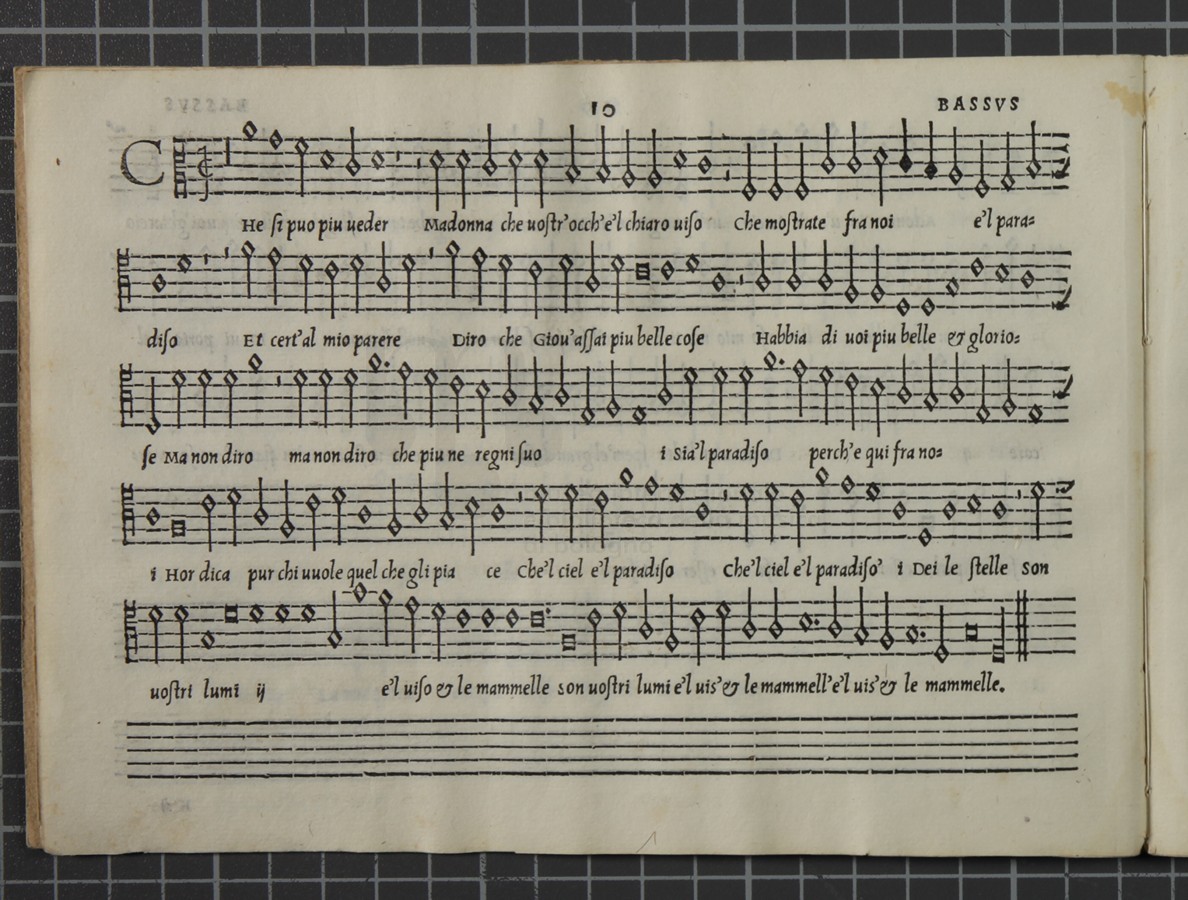 10 BASSVS
CHe ſi puo piu ueder Madonna che uoſtr'occh'e'l chiaro uiſo Che moſtrate fra noi e'l para=
diſo Et cert'al mio parere Diro che Giou'aſſai piu belle coſe Habbia di uoi piu belle & glorio=
ſe Ma non diro ma non diro che piu ne regni ſuo i Sia'l paradiſo perch'e qui fra no=
i Hor dica pur chi uuole quel che gli pia ce Che'l ciel e'l paradiſo Che'l ciel e'l paradiſo' i Dei le ſtelle son
uoſtri lumi ij e'l uiſo & le mammelle son uoſtri lumi e'l uis'& le mammell'e'l uis'& le mammelle.